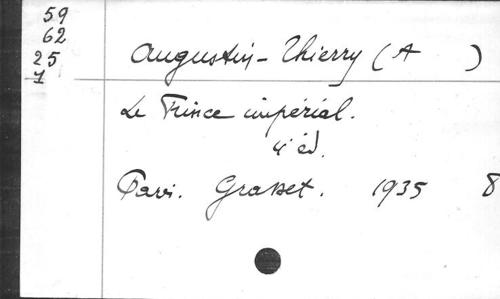 59
62
25
1
Augustin-Thierry (A )
Le Prince impérial.
4e éd.
Paris. Grasset. 1935 8